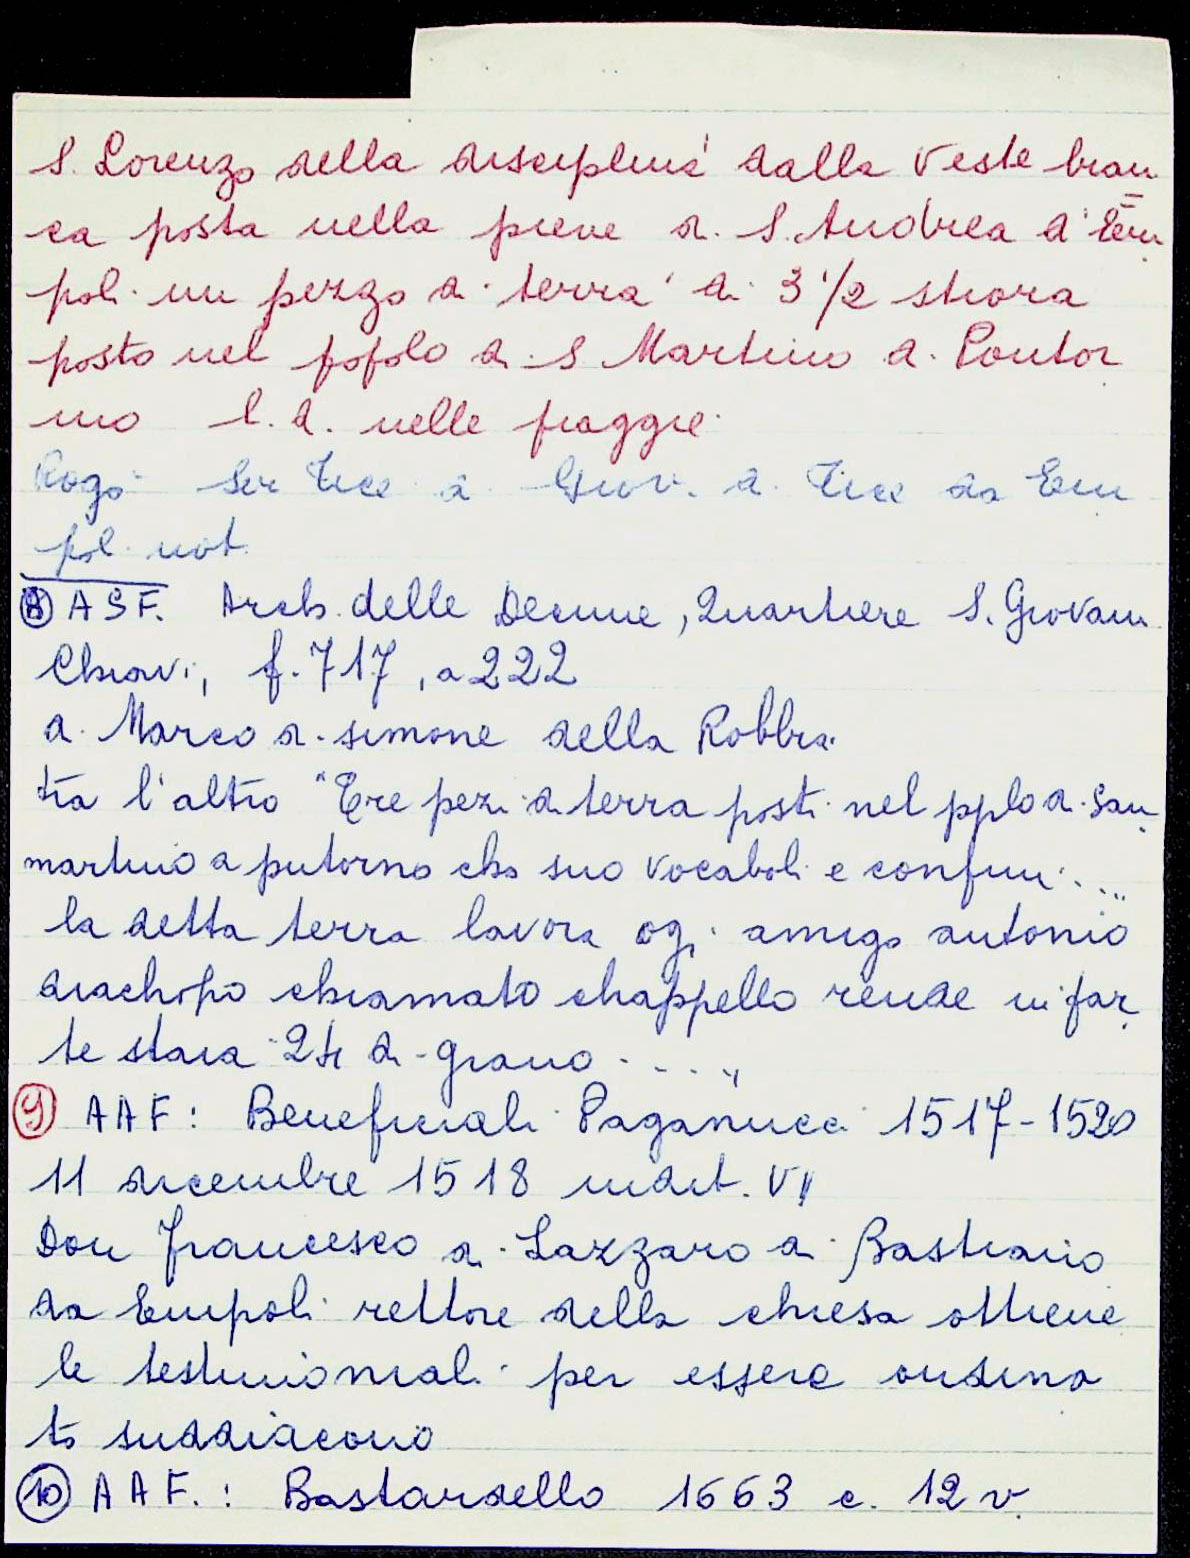 S. Lorenzo della disciplina dalla veste bian
ca posta nella pieve di S. Andrea d'Em
poli un pezzo di terra di 3 1/2 stiora
posto nel popolo di S Martino a Pontor
mo l.d. nelle piaggie
Rogò Ser Tice di Giov. di Tice da Em
poli not.
8 ASF. Arch. delle Decime, Quartiere S. Giovanni
Chiavi, f. 717, a 222
di Marco di simone della Robbia
tra l'altro "Tre pezi di terra posti nel pplo di San
martino a putorno cho suo vocaboli e confini ...."
la detta terra lavora ogi amigo antonio
diachopo chiamato chappello rende in par
te staia 24 di grano ...."
9 AAF: Beneficiali Paganucci 1517-1520
11 dicembre 1518 indit. VII
Don Francesco di Lazzaro di Bastiano
da Empoli rettore della chiesa ottiene
le testimoniali per essere ordina
to suddiacono
10 AAF.: Bastardello 1663 c. 12 v.